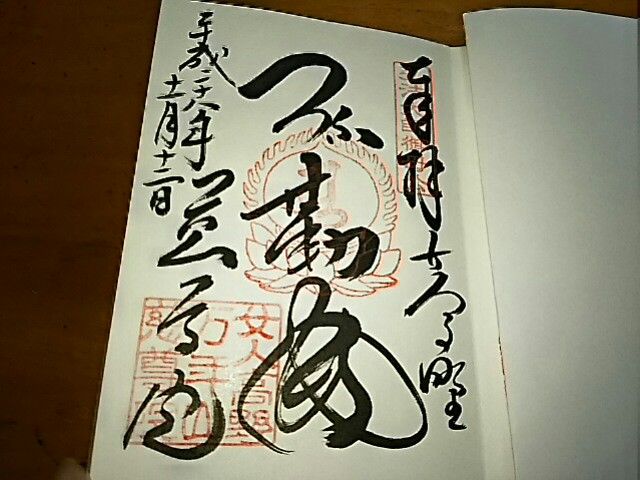 奉拝 女人高野
弥勒
平成二十八年
十一月十二日
慈尊院
女人高野
万年山
慈尊院